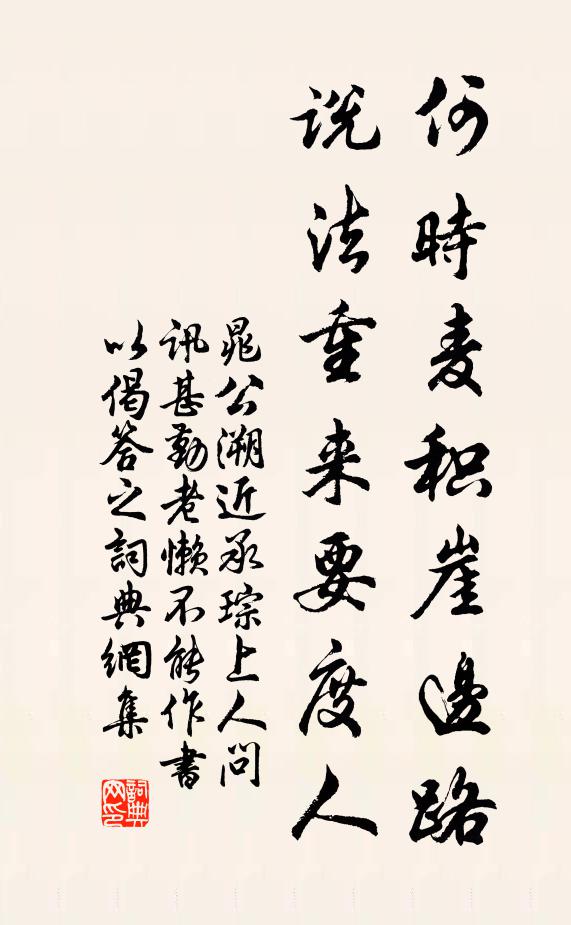 何時麦积崖邊路
説法重来要度人
晁公溯近承琮上人問
訊甚勤老懒不能作書
以偈答之詞典網集
詞典网印